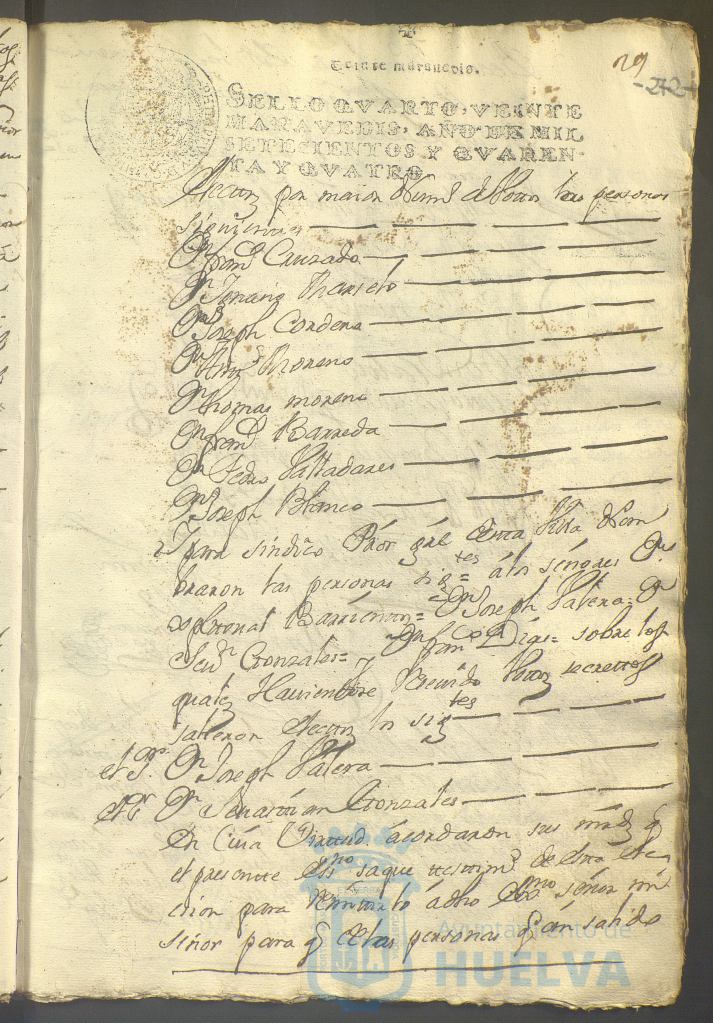 29
-272-
Veinte maravedis.
SELLO QVARTO, VEINTE
MARAVEDIS, AÑO DE MIL
SETECIENTOS Y QVAREN-
TA Y QVATRO
por maior de votos las personas
siguientes
Dn Franco Cruzado
Dn Ignacio
Dn Joseph Cordero
Dn Anto Moreno
Dn Thomas moreno
Dn Franco Barreda
Dn Pedro Valladares
Dn Joseph Blanco
Y para síndico Prór grãl desta Villa
braron las personas sigtes = á los señores Dn
Barrientos = Dn Joseph Valera = Dn
Gonzales = y Dn Fran Co Días = sobre los
quales Haviendose votos secrettos
salieron electos los sigtes
el Po. Dn Joseph Valera
Dn Sevastian Gonzales
En Cuia Virttud acordaron sus mrds q
el presentte Essno saque ttestimo de esta elec
cion para Remitirlo á dho Exmo señor mi
señor para q de las personas q an salido
Ayuntamiento de
HUELVA